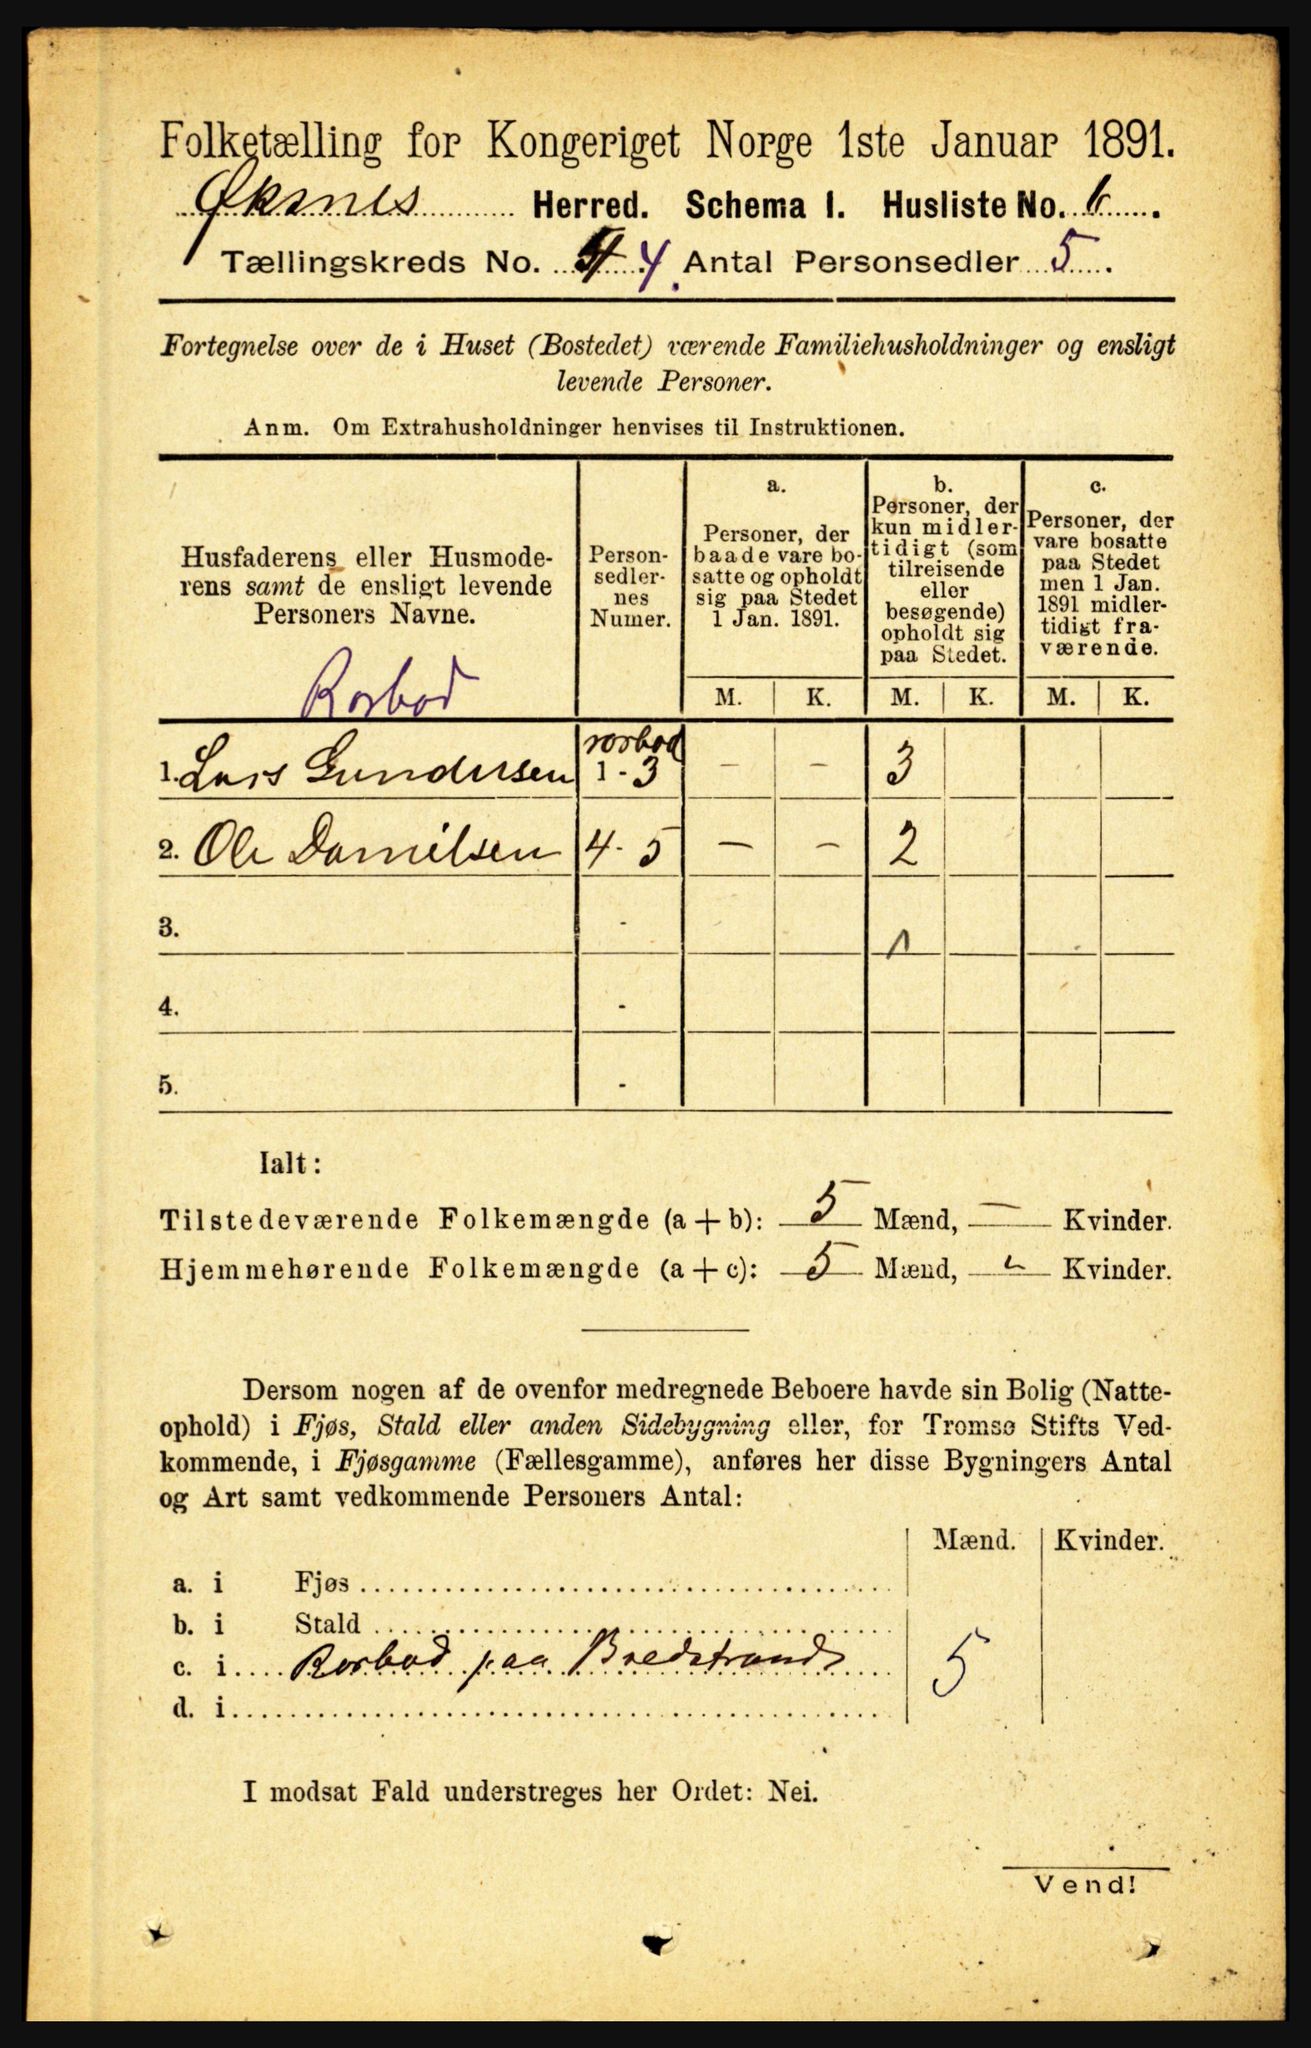 Folketælling for Kongeriget Norge 1ste Januar 1891.
Øksnes Herred. Schema I. Husliste No. 6.
Tællingskreds No. 4. Antal Personsedler 5.
Fortegnelse over de i Huset (Bostedet) værende Familiehusholdninger og ensligt
levende Personer.
Anm. Om Extrahusholdninger henvises til Instruktionen.
Husfaderens eller Husmode-
rens samt de ensligt levende
Personers Navne.
Rorbod
Person-
sedler-
nes
Numer.
a.
Personer, der
baade vare bo-
satte og opholdt
sig paa Stedet
1 Jan. 1891.
b.
Personer, der
kun midler-
tidigt (som
tilreisende
eller
besøgende)
opholdt sig
paa Stedet.
c.
Personer, der
vare bosatte
paa Stedet
men 1 Jan.
1891 midler-
tidigt fra-
værende.
M. K. M. K. M. K.
rorbod
1. Lars Gundersen 1 - 3 - - 3
2. Ole Danielsen 4 - 5 - - 2
3. -
4. -
5. -
Ialt:
Tilstedeværende Folkemængde (a + b): 5 Mænd, - Kvinder.
Hjemmehørende Folkemængde (a + c): 5 Mænd, Kvinder.
Dersom nogen af de ovenfor medregnede Beboere havde sin Bolig (Natte-
ophold) i Fjøs, Stald eller anden Sidebygning eller, for Tromsø Stifts Ved-
kommende, i Fjøsgamme (Fællesgamme), anføres her disse Bygningers Antal
og Art samt vedkommende Personers Antal:
Mænd. Kvinder.
a. i Fjøs
b. i Stald
c. i Rorbod paa Bredstrand 5
d. i
I modsat Fald understreges her Ordet: Nei.
Vend!